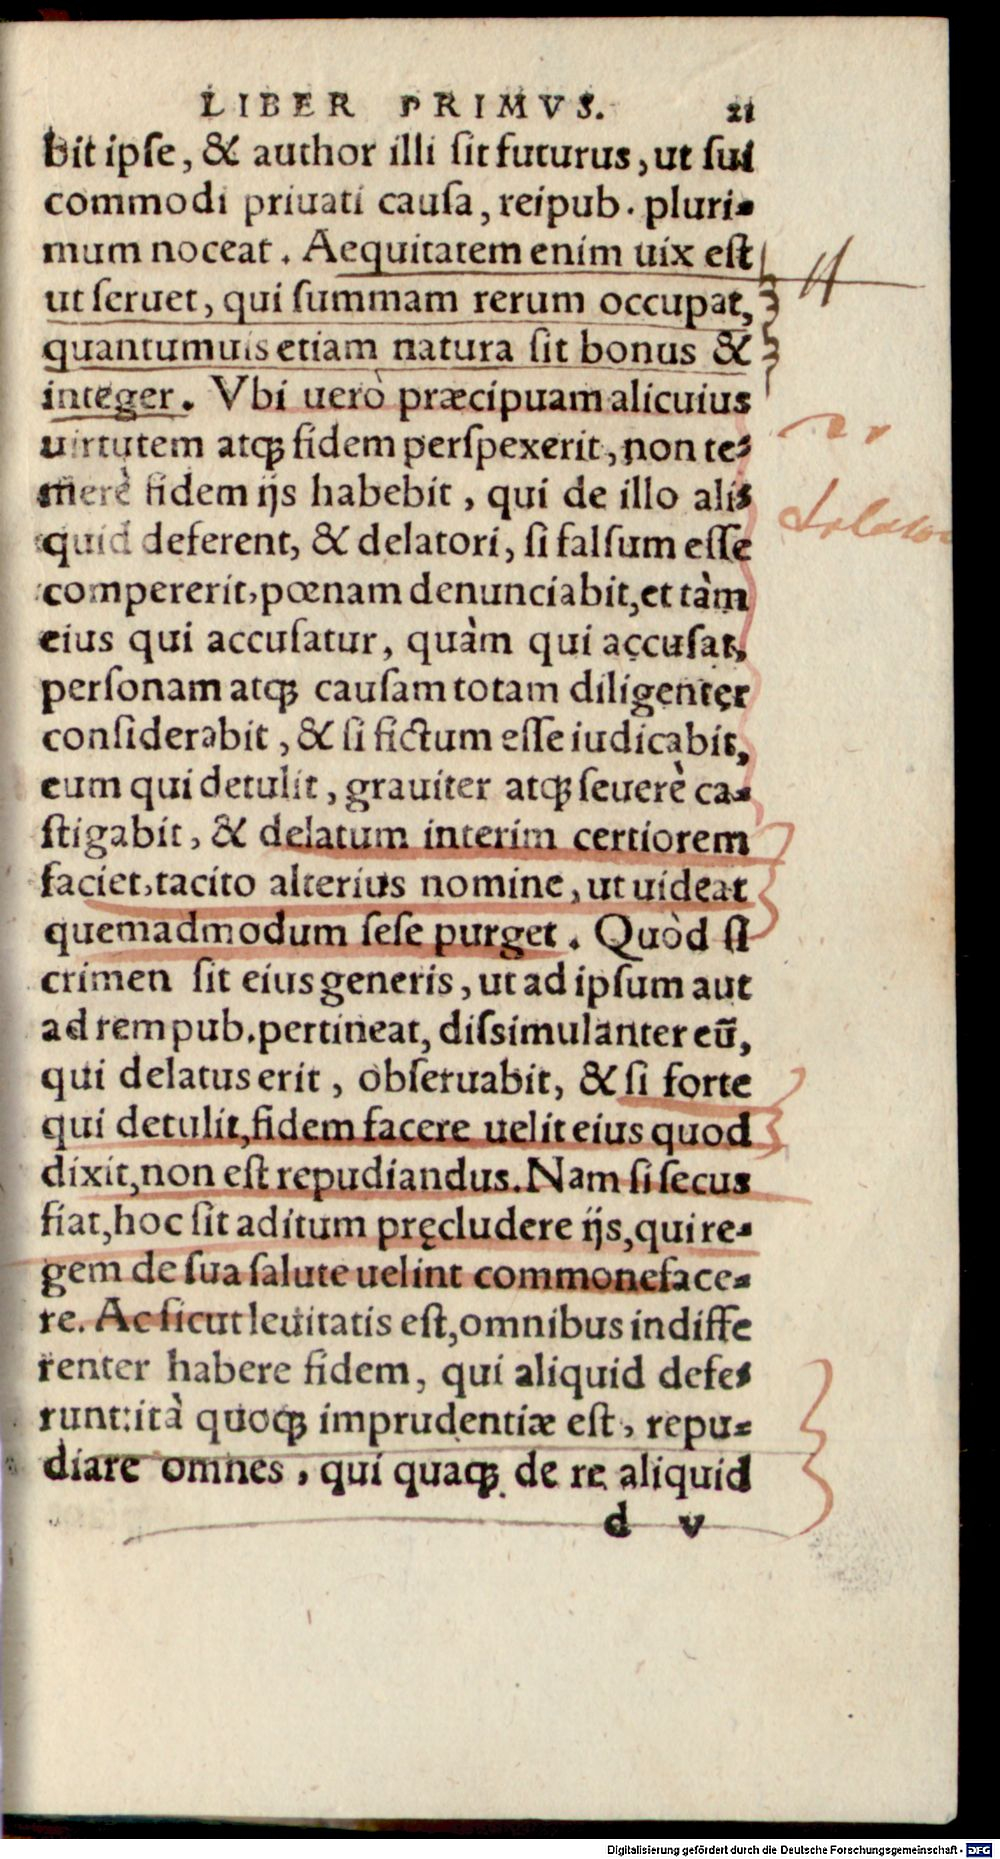 LIBER PRIMVS. 21
bit ipse, & author illi sit futurus, ut sui
commodi priuati causa, reipub. pluri-
mum noceat. Aequitatem enim uix est
ut seruet, qui summam rerum occupat,
quantumuis etiam natura sit bonus &
integer. Vbi uerò præcipuam alicuius
uirtutem atq; fidem perspexerit, non te-
merè fidem ijs habebit, qui de illo ali-
quid deferent, & delatori, si falsum esse
compererit, pœnam denunciabit, et tàm
eius qui accusatur, quàm qui accusat,
personam atq; causam totam diligenter
considerabit, & si fictum esse iudicabit,
eum qui detulit, grauiter atq; seuerè ca-
stigabit, & delatum interim certiorem
faciet, tacito alterius nomine, ut uideat
quemadmodum sese purget. Quòd si
crimen sit eius generis, ut ad ipsum aut
ad rem pub. pertineat, dissimulanter eũ,
qui delatus erit, obseruabit, & si forte
qui detulit, fidem facere uelit eius quod
dixit, non est repudiandus. Nam si secus
fiat, hoc sit aditum pręcludere ijs, qui re-
gem de sua salute uelint commoneface-
re. Ac sicut leuitatis est, omnibus indiffe
renter habere fidem, qui aliquid defe-
runt: ità quoq; imprudentiæ est, repu-
diare omnes, qui quaq; de re aliquid
d v
Digitalisierung gefördert durch die Deutsche Forschungsgemeinschaft - DFG